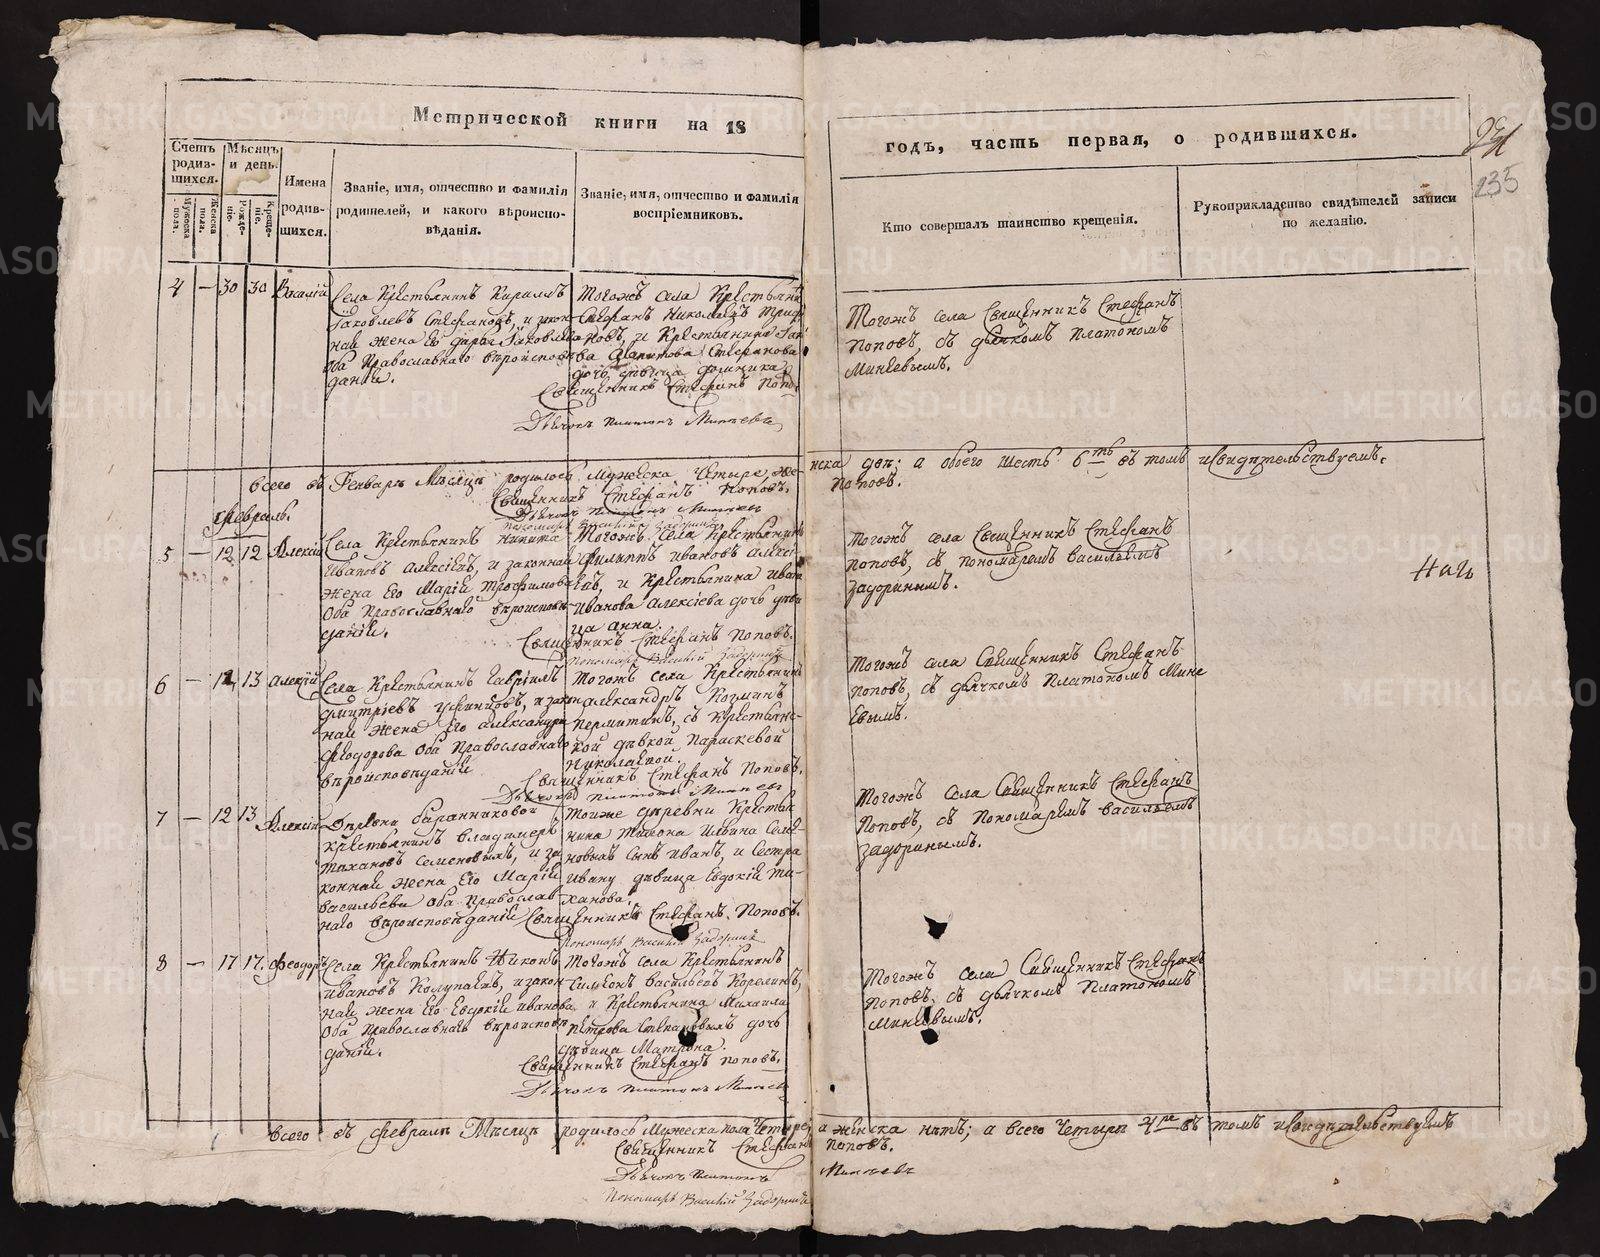 Метрической книги на 18
годъ, часть первая, о родившихся.
235
Счетъ родившихся.
Мужеска пола.
Женска пола.
Мѣсяцъ и день.
Рожденіе.
Крещеніе.
Имена родившихся.
Званіе, имя, отчество и фамилія
родителей, и какого вѣроиспо-
вѣданія.
Званіе, имя, отчество и фамилія
воспріемниковъ.
Кто совершалъ таинство крещенія.
Рукоприкладство свидѣтелей записи
по желанію.
4 — 30 30 Василій
Села Крестьянинъ Кириллъ
Іаковлевъ Стефановъ, и закон
ная жена его
Оба Православнаго вѣроиспов
данія.
Тогожъ села Крестьян
Стефанъ Николаевъ
новъ, и Крестьянина
Стефанова
дочь дѣвица Домника
Священникъ Стефанъ Попо
Дьячокъ Платонъ Минѣевъ
Тогожъ села Священникъ Стефанъ
Поповъ, съ дьячкомъ Платономъ
Минѣевымъ.
всего въ Генварѣ Мѣсяцѣ родилось Мужеска Четыре, же-
нска двѣ; а обоего шесть 6ть въ томъ и свидѣтельствуемъ.
Священникъ Стефанъ Поповъ.
Поповъ.
Дьячокъ Платонъ Минѣев
Пономарь Василій Задоринъ
Февраль.
5 — 12 12 Алексій
Села Крестьянинъ Никита
Ивановъ Алексѣевъ, и законная
жена Его Марія Трофимова
Оба Православнаго вѣроисповѣ
данія.
Тогожъ села Крестьянинъ
Филиппъ Ивановъ Алексѣ
евъ, и Крестьянина Ивана
Иванова Алексіева дочь дѣви
ца Анна.
Священникъ Стефанъ Поповъ.
Пономарь Василій Задоринъ
Тогожъ села Священникъ Стефанъ
Поповъ, съ пономаремъ Васильемъ
Задоринымъ.
6 — 12 13 Алексій
Села Крестьянинъ Гавріилъ
Дмитріевъ Уфинцовъ, и закон
ная жена Его Александра
Феодорова Оба Православнаго
вѣроисповѣданія
Тогожъ села Крестьянинъ
Александръ Козминъ
Пермитинъ, съ Крестьянс-
кой дѣвкой Параскевой
Николаевой.
Священникъ Стефанъ Поповъ.
Дьячокъ Платонъ Минѣевъ
Тогожъ села Священникъ Стефанъ
Поповъ, съ дьячкомъ Платономъ Минѣ
евымъ.
7 — 12 13 Алексій
Деревни Баранниковой
Крестьянинъ Владимеръ
Тихановъ Семеновыхъ, и за
конная жена Его Марія
Васильева Оба Православ
наго вѣроисповѣданія
Тойже деревни Крестья
нина Тихона Ильина Семе-
новыхъ сынъ Иванъ, и сестра
Ивану дѣвица Евдокія Ти-
ханова.
Священникъ Стефанъ Поповъ.
Пономарь Василій Задоринъ
Тогожъ села Священникъ Стефанъ
Поповъ, съ Пономаремъ Васильемъ
Задоринымъ.
8 — 17 17. Феодоръ
Села Крестьянинъ Никонъ
Ивановъ Колупаевъ, и закон
ная жена Его Евдокія Иванова
Оба Православнаго вѣроисповѣ
данія.
Тогожъ села Крестьянинъ
Симеонъ Васильевъ Корелинъ,
и Крестьянина Михаила
Петрова Степановыхъ дочь
дѣвица Матрона.
Священникъ Стефанъ Поповъ.
Дьячокъ Платонъ Минѣев
Тогожъ села Священникъ Стефанъ
Поповъ, съ дьячкомъ Платономъ
Минѣевымъ.
всего въ февралѣ Мѣсяцѣ родилось Мужеска пола Четыре,
а женска нѣтъ; а всего Четыре 4ре въ томъ и свидѣтельствуемъ
Священникъ Стефанъ
Поповъ.
Дьячокъ Платонъ
Минѣевъ
Пономарь Василій Задоринъ
METRIKI.GASO-URAL.RU